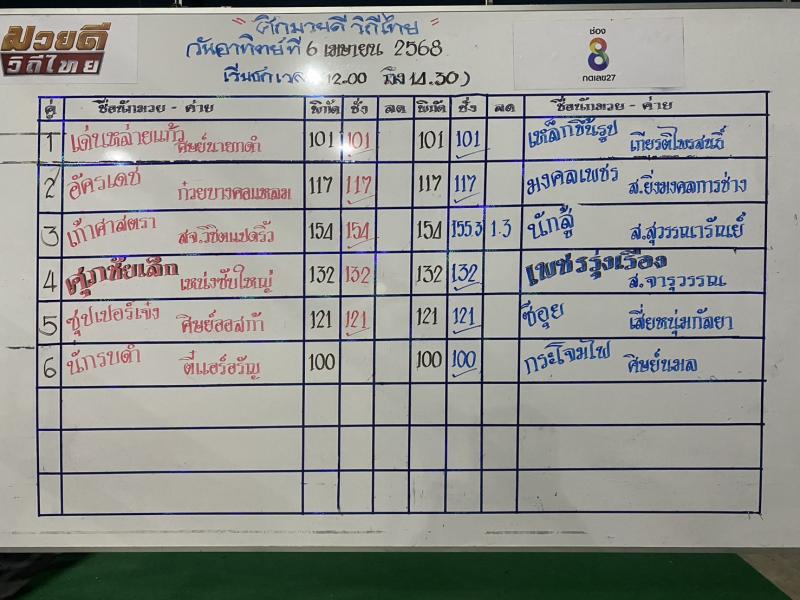 มวยดี
วิถีไทย
"ศึกมวยดี วิถีไทย"
(วันอาทิตย์ที่ 6 เมษายน 2568
เริ่มชก เวลา 12.00 ถึง 14.30)
ช่อง
8
กดเลข27
คู่ ชื่อนักมวย - ค่าย พิกัด ชั่ง ลด พิกัด ชั่ง ลด ชื่อนักมวย - ค่าย
1 เด่นหล่ายแก้ว ศิษย์นายกดำ 101 101 101 101 เหล็กขึ้นรูป เกียรติไพรสนธิ์
2 อัครเดช ก๋วยบางคอแหลม 117 117 117 117 มงคลเพชร ส.ยิ่งมงคลการช่าง
3 เก้าศาสตรา สจ.วิชิตแปดริ้ว 154 154 154 155.3 1.3 นักสู้ ส.สุวรรณารัณย์
4 ศุภชัยเล็ก เหน่งซับใหญ่ 132 132 132 132 เพชรรุ่งเรือง ส.จารุวรรณ
5 ซุปเปอร์เจ๋ง ศิษย์ออสก้า 121 121 121 121 ซีอุย เสี่ยหนุ่มกัลยา
6 นักรบดำ ตี๋แอร์อรัญ 100 100 100 กระโจมไฟ ศิษย์นมล